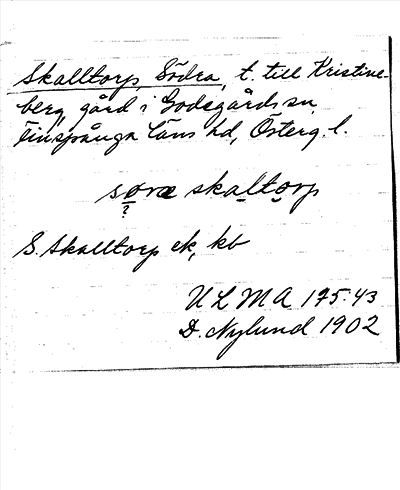 Skalltorp, Södra, t. till Kristine-
berg, gård i Godegårds sn,
Finspånga läns hd, Österg. l.
søræ skaltorp
?
S. Skalltorp ek, kb
ULMA 175:43
D. Nylund 1902